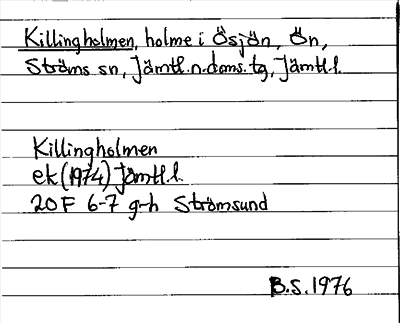 Killingholmen, holme i Ösjön, Ön,
Ströms sn, Jämtl.n.doms.tg, Jämtl.l.
Killingholmen
ek (1974) Jämtl.l.
20F 6-7 g-h Strömsund
B.S. 1976